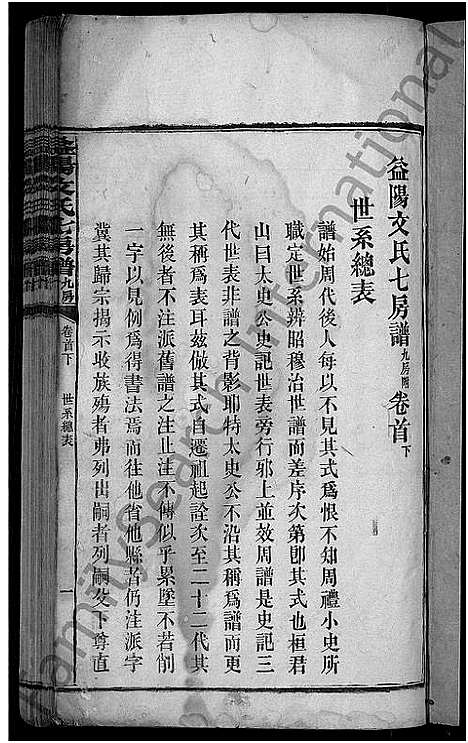 益陽文氏七房譜九房附卷首下
世系總表
譜始周代後人每以不見其式爲恨不知周禮小史所
職定世系辨昭穆治世譜而差序次第卽其式也桓君
山曰太史公史記世表旁行邪上並效周譜是史記三
代世表非譜之背影耶特太史公不沿其稱爲譜而更
其稱爲表耳茲倣其式自遷祖起詮次至二十二代其
無後者不注派舊譜之注止注不傳似乎累墜不若削
一字以見例爲得書法焉而往他省他縣者仍注派字
冀其歸宗揭示收族殤者弗列出嗣者列嗣父下尊直
益陽文氏七房譜九房
卷首下
世系總表
一
familysearch international